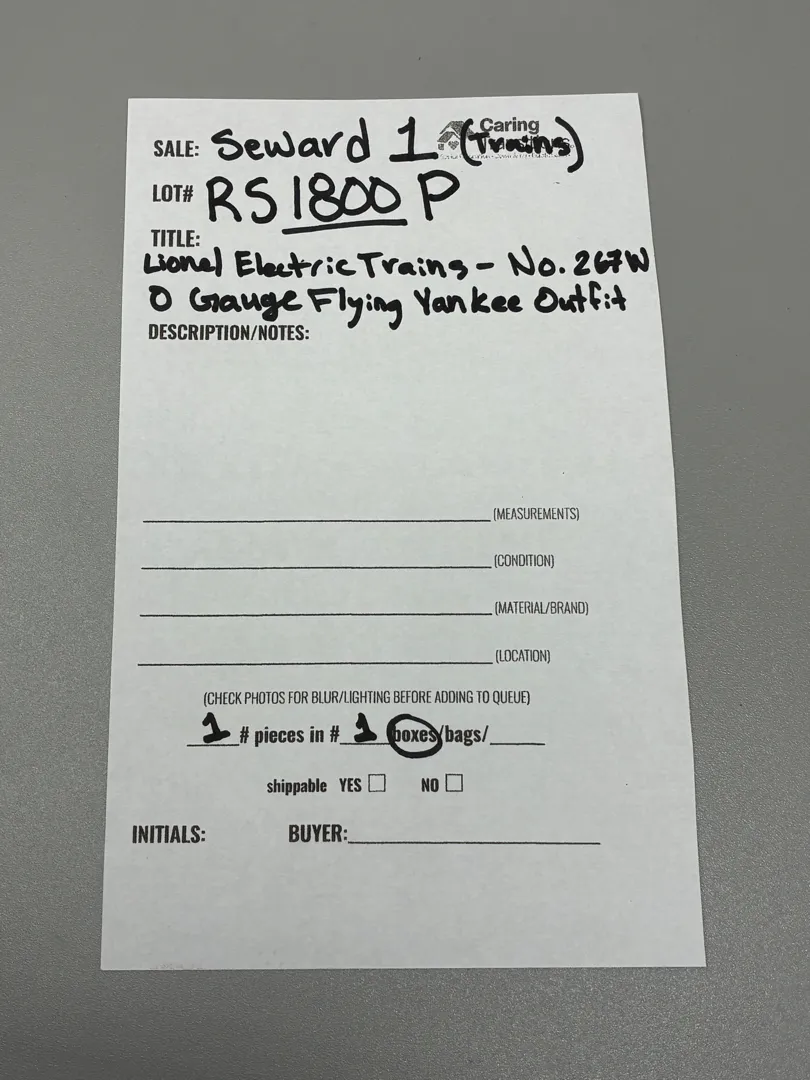 SALE: Seward 1 (Trains)
Caring
LOT# RS 1800 P
TITLE:
Lionel Electric Trains - No. 267W
O Gauge Flying Yankee Outfit
DESCRIPTION/NOTES:
(MEASUREMENTS)
(CONDITION)
(MATERIAL/BRAND)
(LOCATION)
(CHECK PHOTOS FOR BLUR/LIGHTING BEFORE ADDING TO QUEUE)
1 # pieces in # 1 boxes/bags/
shippable YES NO
INITIALS: BUYER: